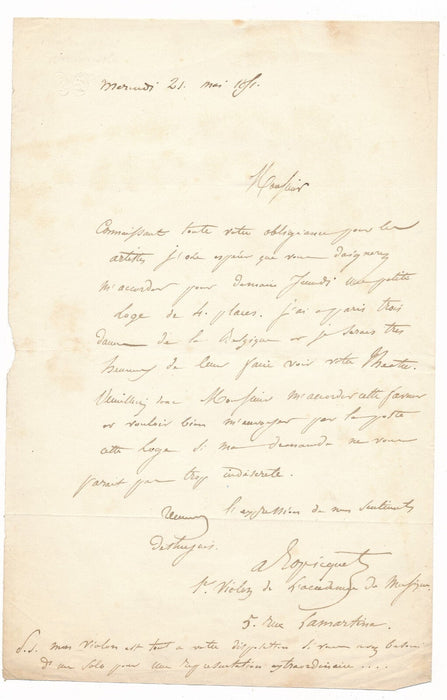 Mercredi 21. mai 1851.
Monsieur
Connaissant toute votre obligeance pour les
artistes j'ose espérer que vous daignerez
m'accorder pour demain Jeudi une petite
loge de 4. places. j'ai à paris trois
dames de la Belgique et je serais très
heureux de leur faire voir votre Theatre.
Veuillez donc Monsieur m'accorder cette faveur
et vouloir bien m'envoyer par la poste
cette loge si ma demande ne vous
parait pas trop indiscrete.
Recevez l'expression de mes sentiments
distingués.
A Ropicquet
1er Violon de l'académie de Musique
5. rue Lamartine.
P.S. mon violon est tout a votre disposition si vous avez besoin
d'un solo pour une représentation extraordinaire....